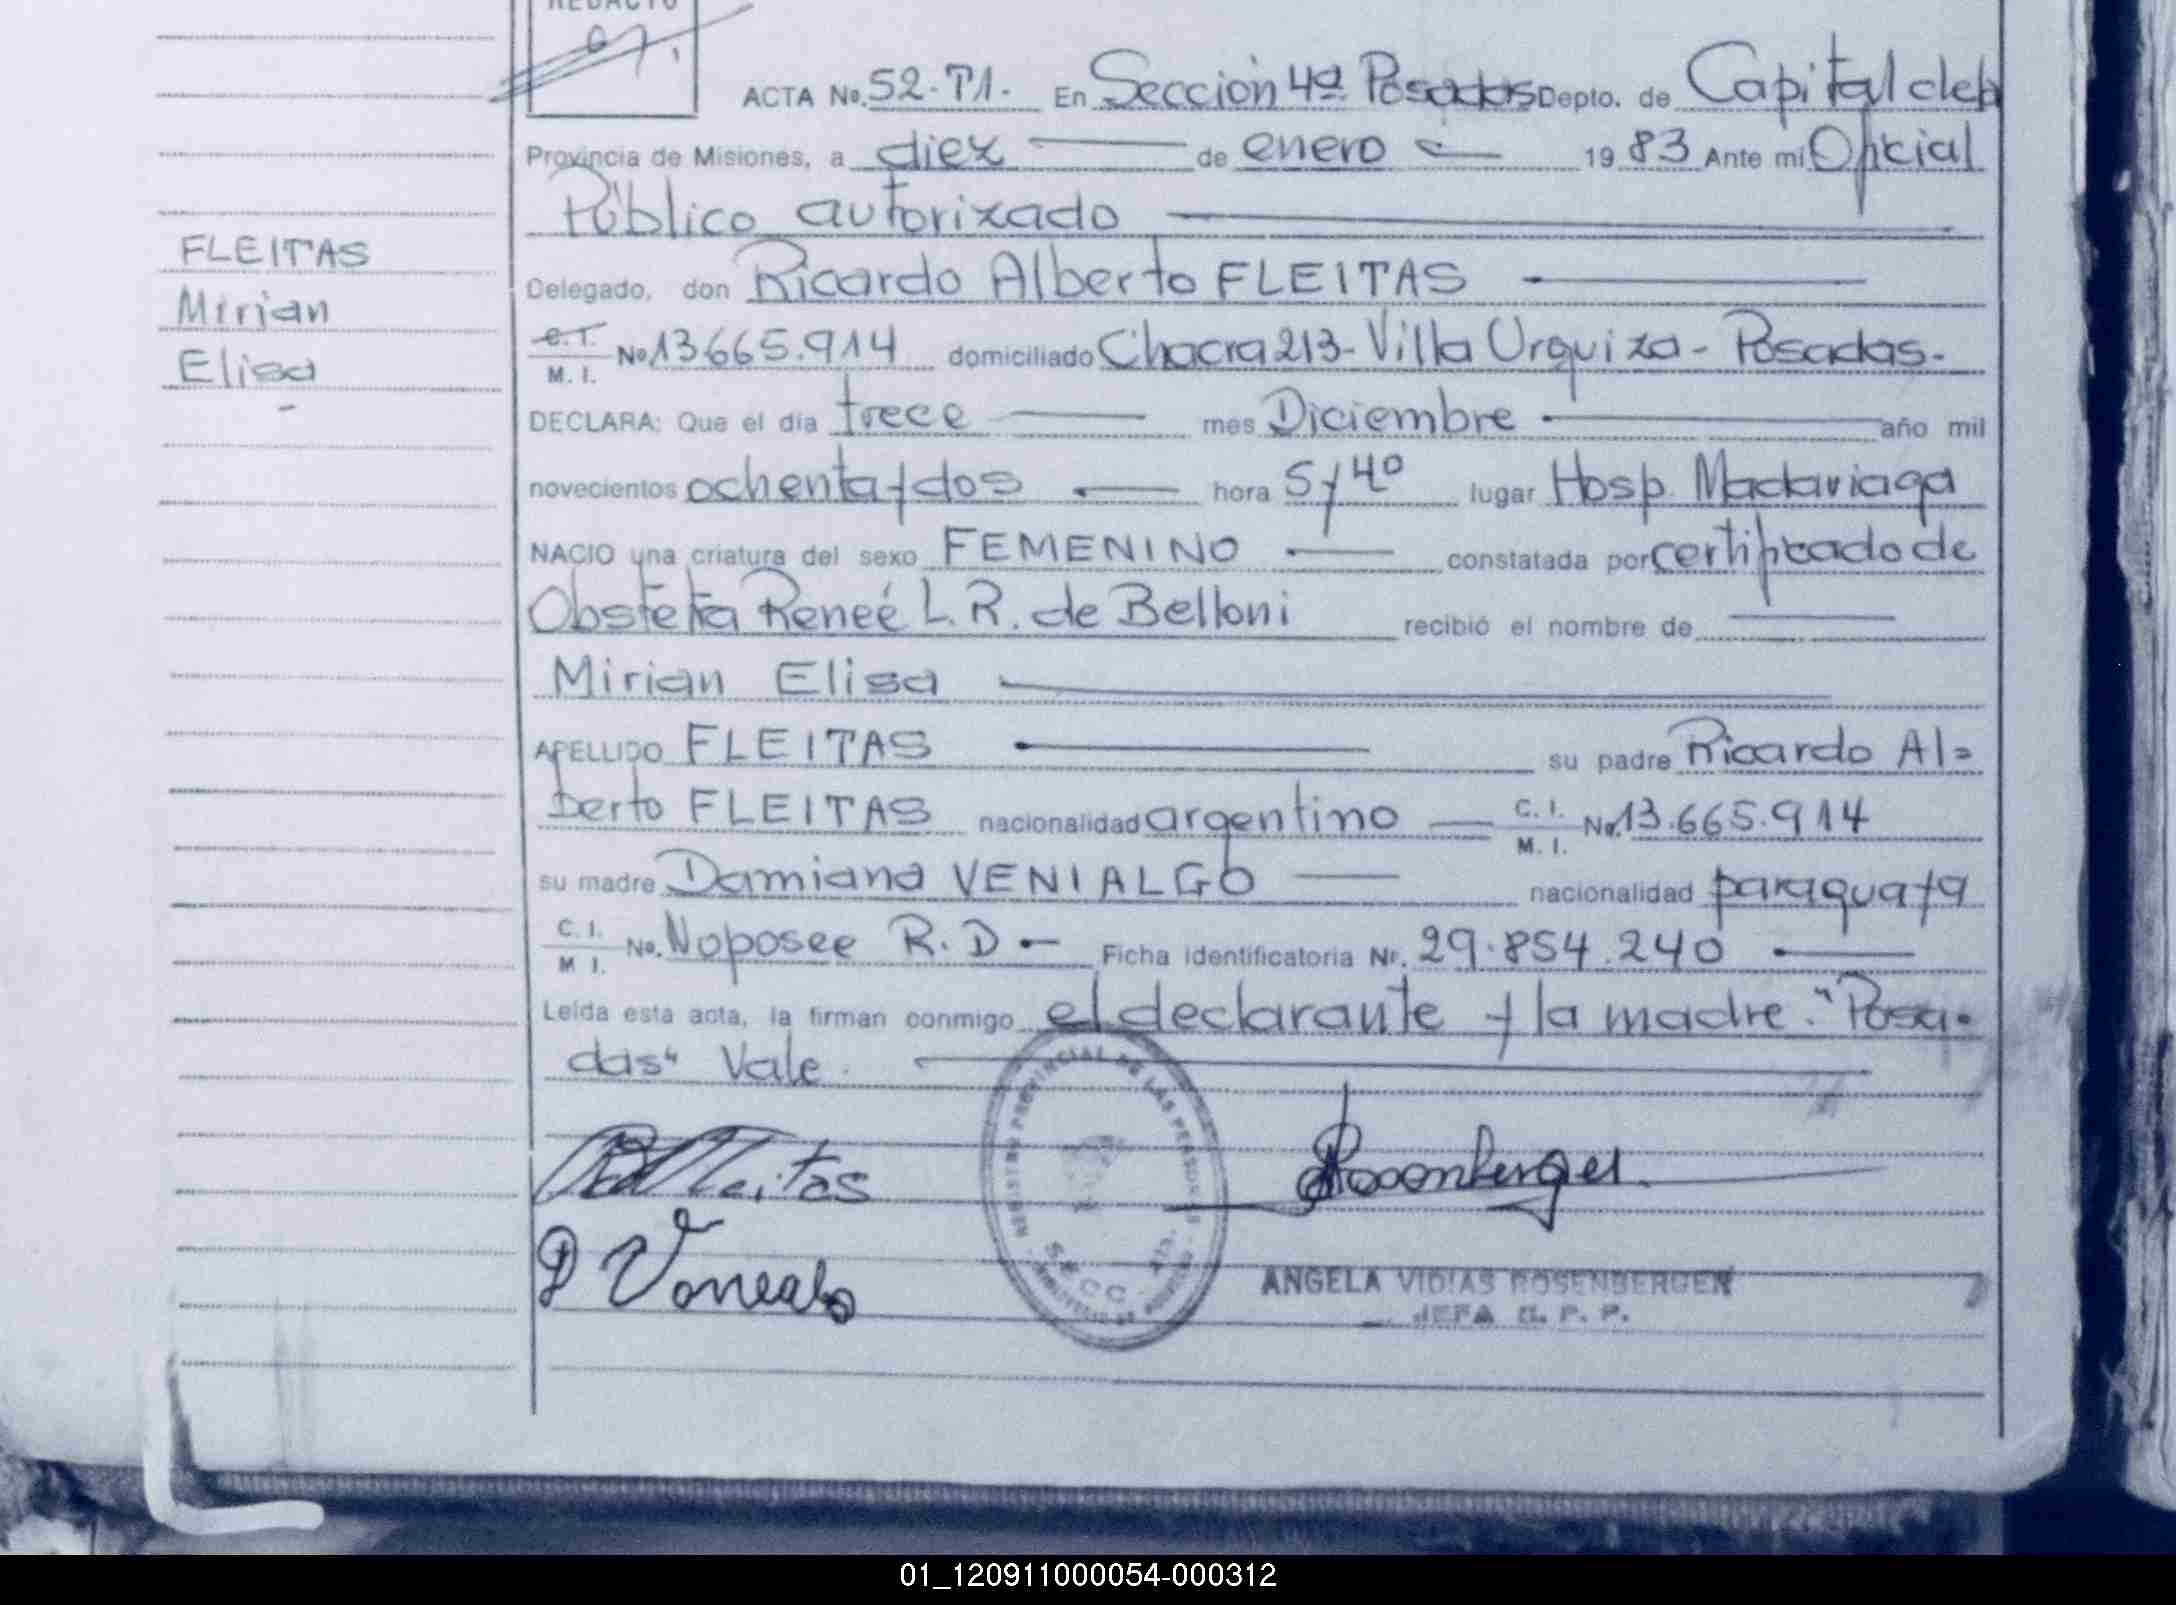 REDACTO
ACTA No. 52.T1. En Sección 4ª Posadas Depto. de Capital de la
Provincia de Misiones, a diez de enero 19 83 Ante mi Oficial
Público autorizado
FLEITAS
Mirian
Elisa
Delegado, don Ricardo Alberto FLEITAS
C.I. M. I. No 13.665.914 domiciliado Chacra 213 - Villa Urquiza - Posadas.
DECLARA: Que el día trece mes Diciembre año mil
novecientos ochenta y dos hora 5 y 40 lugar Hosp. Madariaga
NACIO una criatura del sexo FEMENINO constatada por certificado de
Obstetra Reneé L. R. de Belloni recibió el nombre de
Mirian Elisa
APELLIDO FLEITAS su padre Ricardo Al=
berto FLEITAS nacionalidad argentino C. I. M. I. No. 13.665.914
su madre Damiana VENIALGO nacionalidad paraguaya
C. I. M I. No. No posee R. D - Ficha identificatoria Nr. 29.854.240
Leída esta acta, la firman conmigo el declarante y la madre. "Posa-
das" Vale.
REGISTRO PROVINCIAL DE LAS PERSONAS
SECC. 4ta.
Fleitas
Rosenberger
D V
ANGELA VIDIAS ROSENBERGEN
JEFA R. P. P.
01_120911000054-000312